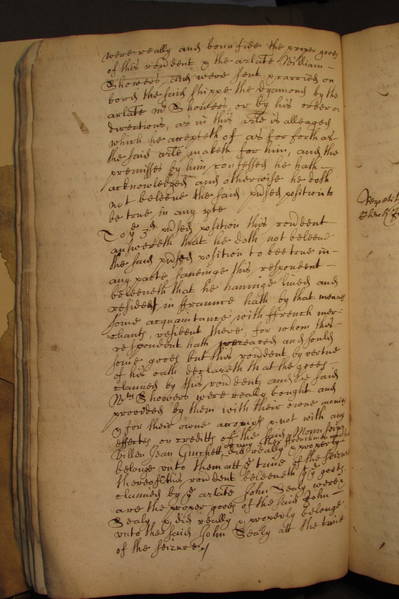 were really and bona fide the proper goods
of this rendent & the arlate William
Showers and were sent & carried on
bord the said shippe the Dyamond by the
arlate Mr Showers, or by his order or
directions, as in this arle is alleaged
which he accepteth of as far forth as
the said arle maketh for him, and the
premisses by him confessed he hath
acknowledged and otherwise he doth
not beleeve the said position to
be true in any parte
To ye 3rd position this rendent
answereth that he doth not beleeve
the said position to bee true in
any parte saveinge this respondent
beleeveth that he haveinge lived and
resided in ffraunce hath by that meanes
some acquaintance with ffrench mer-
chants, resident there for whom this
respondent hath procured and sould
some goods but this rendent by vertue
of his oath declareth that the goods
claymed by this rendent and the said
Mr Showers were really bought and
provided by them with their owne money
& for their owne accompt & not with any
effects or creditts of the said Monsieur
Villee Jean Guychett or any other frenchman & did really & properly
belonge unto them att ye time of the seizure
thereof this rendent beleeveth ye goods
claymed by ye arlate John Sealy were &
are the proper goods of the said John
Sealy & did really & properly belonge
unto the said John Sealy att the time
of the seizure